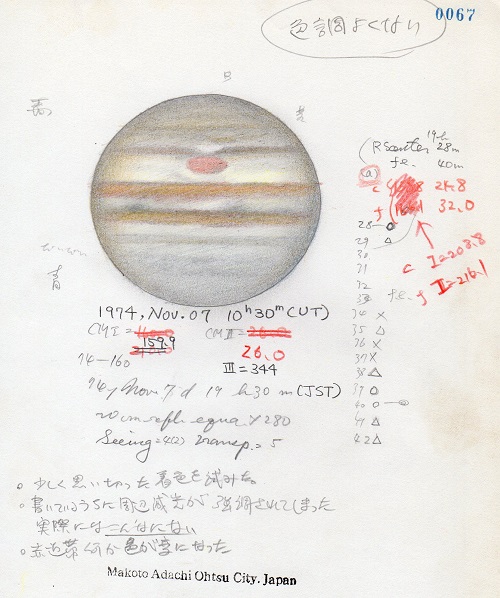 0067
色調よくない
19h
28m
fe. 40m
(a)
c 21.8
f 32.0
28-○
29 △
30
31
32
33 f.e.
34 ×
35 △
36 ×
37 ×
38 △
39 ○
40 ○
41 △
42 △
c I=208.8
f II=216.1
青
1974, Nov. 07 10h30m (UT)
CMI=
159.9
CMII=
26.0
III=344
74-160
74y Nov 7d 19h30m (JST)
20cm refl equa ×280
Seeing=4(2) transp.=5
○ 少しく思い切った着色を試みた。
○ 書いているうちに周辺減光が強調されてしまった
実際にはこんなにない
○ 色が変になった
Makoto Adachi Ohtsu City. Japan